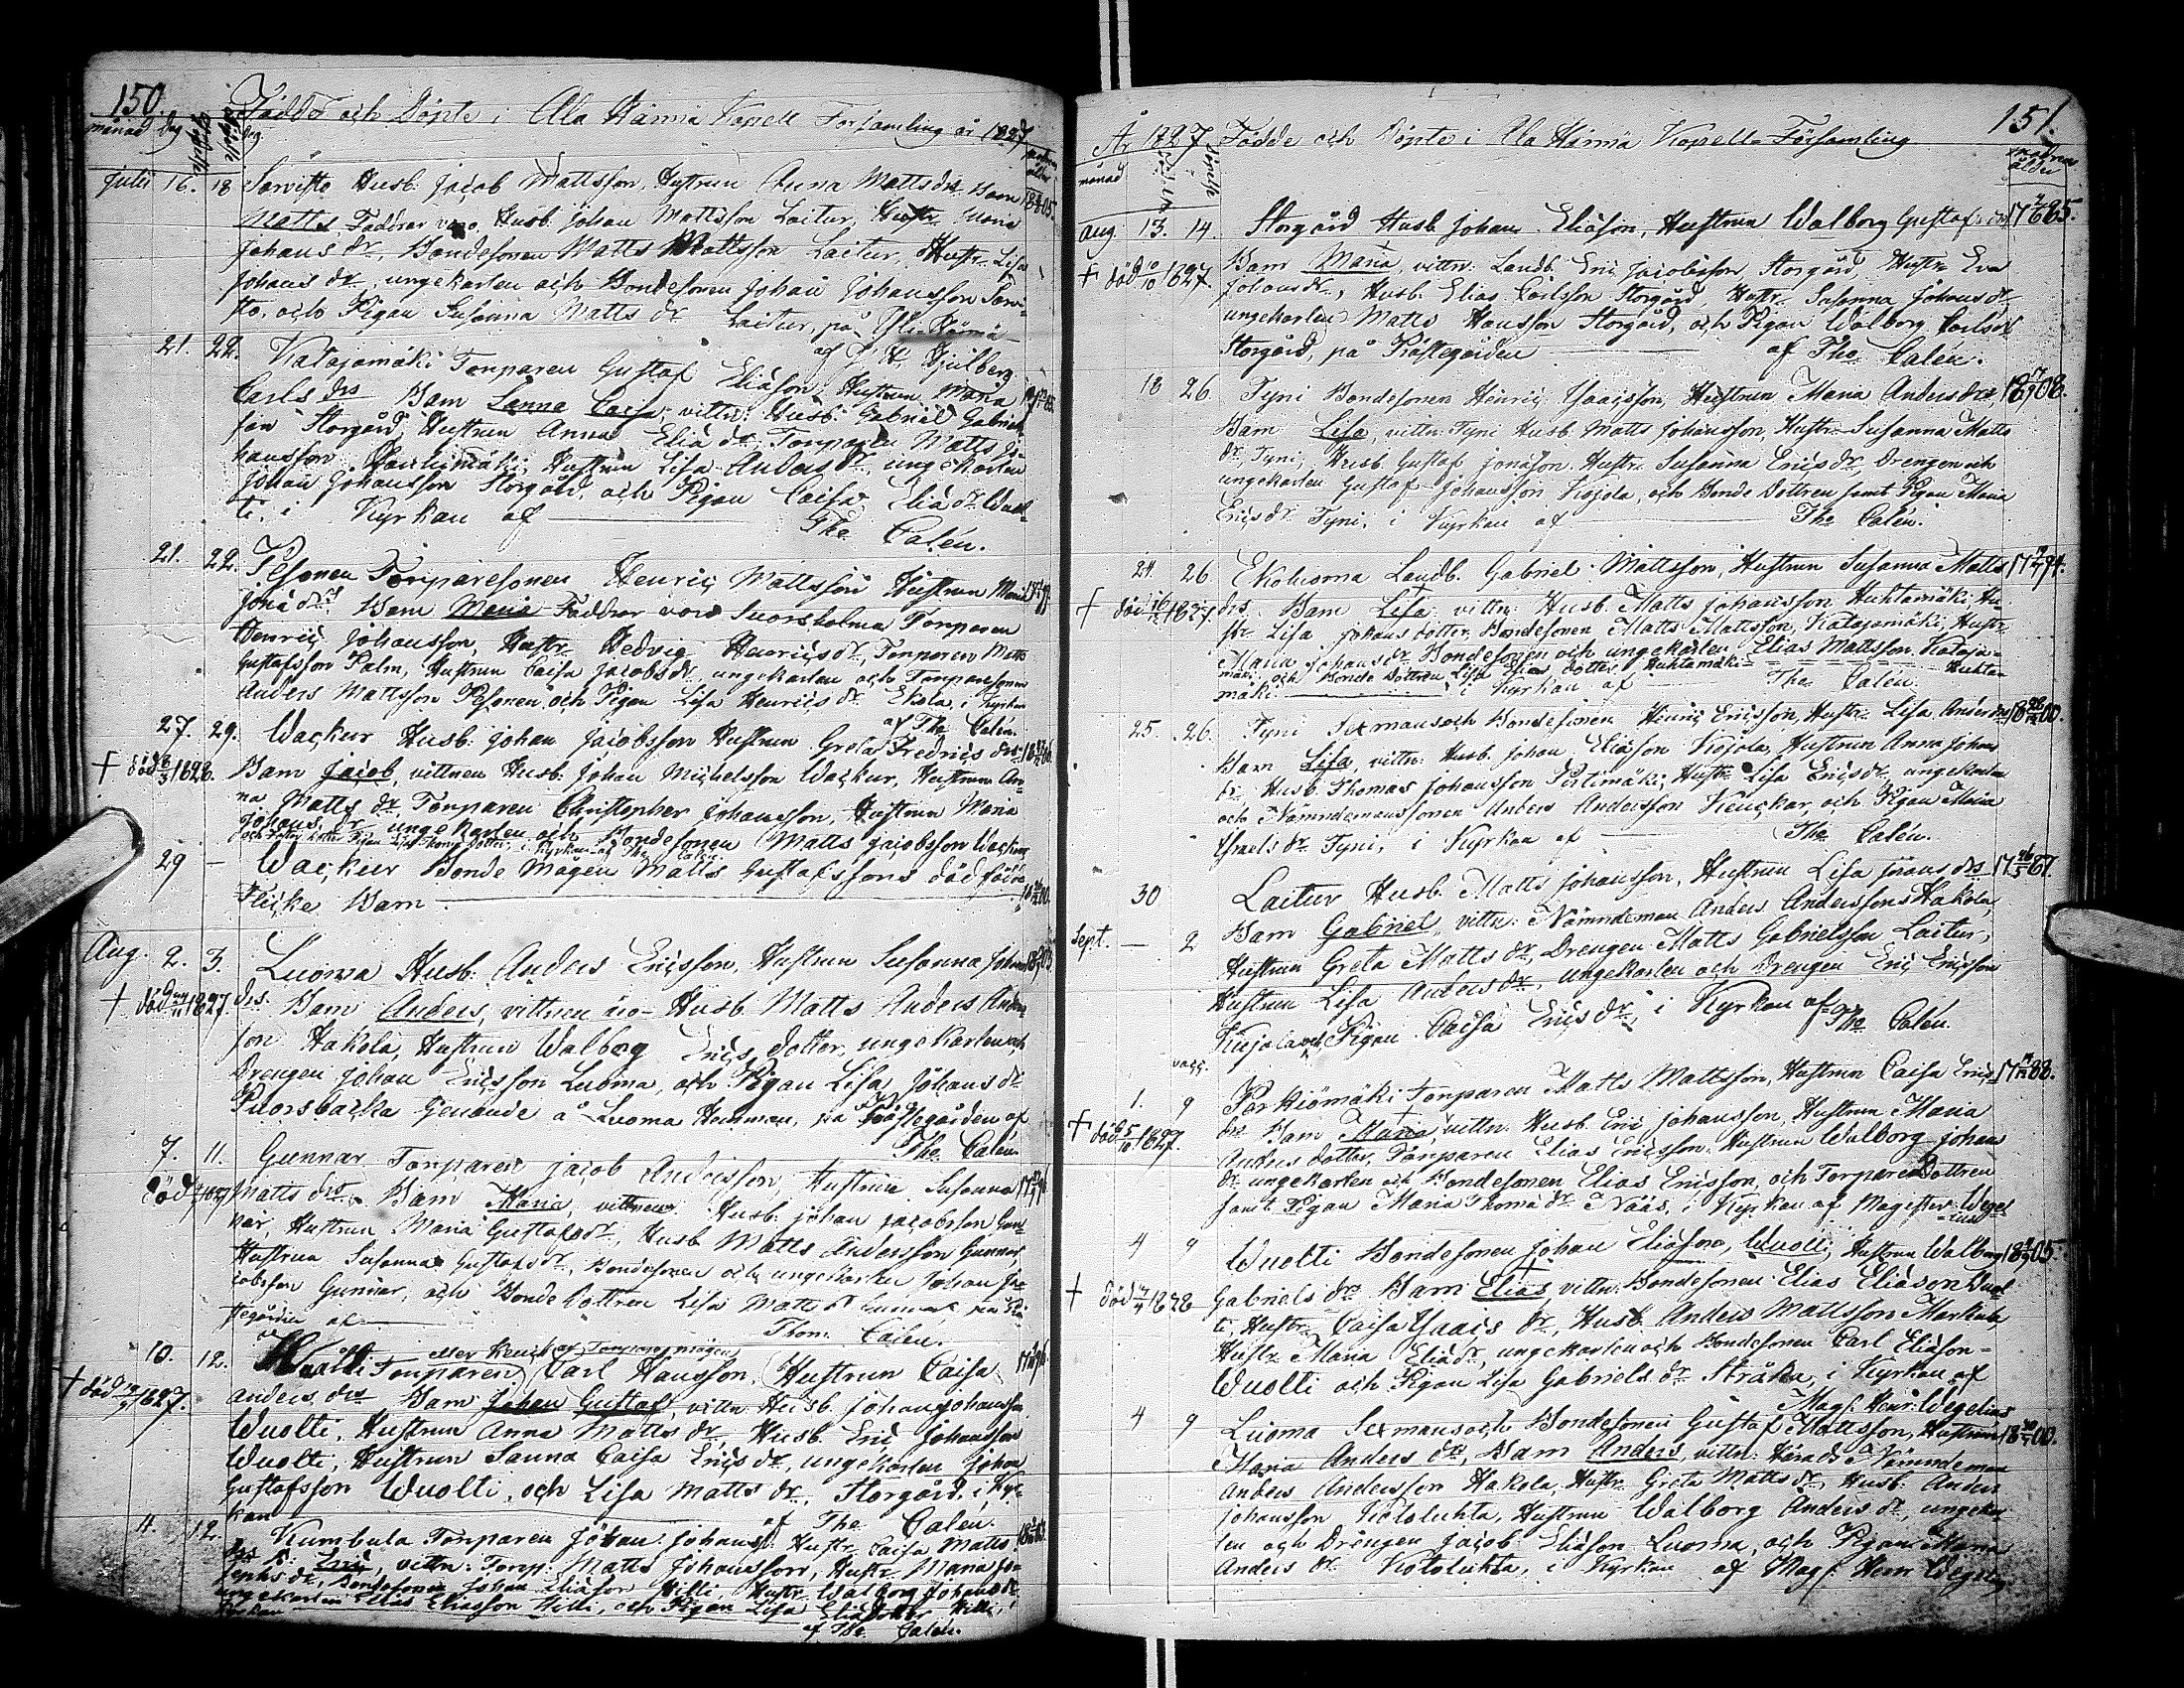 150.
Födde och Döpte i Ala Härmä Kapell Församling år 1827
månad Dag
Julii 16. 18 Sorvisto Husb: Jacob Mattsson, Hustrun Anna Matts drs Barn
Matts Faddrar voro, Husb. Johan Mattsson Laitur, Hustr. Maria
Johans dr, Bondesonen Matts Mattsson Laitur, Hustr. Lisa
Johans dr, ungekarlen och Bondesonen Johan Johansson Sorvi-
sto, och Pigan Susanna Matts dr Laitur, på
af Kjulberg
21. 22. Katajamäki Torparen Gustaf Eliasson, Hustrun Maria
Carls drs Barn Sanna Caisa, vittn: Husb: Gabriel Gabriels
son Storgård, Hustrun Anna Elia dr, Torparen Matts Jo-
hansson Hustrun Lisa Anders dr, ungekarlen
Johan Johansson Storgård, och Pigan Caisa Elia dr Wuol-
ti, i Kyrkan af Tho. Calén.
21. 22. Pesonen Torparesonen Henric Mattsson Hustrun Maria
Jona drs Barn Maria Faddrar voro Suorsholma Torparen
Henric Johansson, Hustr. Hedvig Henrics dr, Torparen Matts
Gustafsson Palm, Hustrun Caisa Jacobs dr, ungekarlen och Torparesonen
Anders Mattsson Pesonen, och Pigan Lisa Henrics dr Ekola, i Kyrkan
af Tho. Calén.
27. 29. Wackur Husb: Johan Jacobsson Hustrun Greta Fredrics drs
† död 1828. Barn Jacob, vittnen Husb. Johan Michelsson Wackur, Hustrun An-
na Matts dr, Torparen Christopher Johansson, Hustrun Maria
Johans dr, ungekarlen och Bondesonen Matts Jacobsson Wackur
och Pigan Lisa Thomæ dotter, i Kyrkan af Tho. Calén.
29 — Wackur Bonde Mågen Matts Gustafssons dödfödde
Flicke Barn
Aug. 2. 3. Luoma Husb: Anders Ericsson, Hustrun Susanna Johans
† död 1827. drs. Barn Anders, vittnen äro Husb. Matts Anders Anders-
son Hakola, Hustrun Walborg Erics dotter, ungekarlen och
Drengen Johan Ericsson Luoma, och Pigan Lisa Johans dr
Puorsbacka tjenande å Luoma Hemman, på Prästegården af
Tho. Calén
7. 11. Gunnar Torparen Jacob Andersson, Hustrun Susanna
död 1827 Matts drs Barn Maria, vittnen Husb: Johan Jacobsson Gun-
nar, Hustrun Maria Gustafs dr, Husb Matts Andersson Gunnar,
Hustrun Susanna Gustafs dr, Bondesonen och ungekarlen Johan Ja-
cobsson Gunnar, och Bonde Dottren Lisa Matts dr Gunnar, på Prä-
stegården af Thom. Calén.
10. 12. Wuolti Torparen Carl Hansson, Hustrun Caisa
† död 1827. Anders drs Barn Johan Gustaf, vittn Husb. Johan Johansson
Wuolti, Hustrun Anna Matts dr, Husb. Eric Johansson
Wuolti, Hustrun Sanna Caisa Erics dr, ungekarlen Johan
Gustafsson Wuolti, och Lisa Matts dr, Storgård, i Kyr-
kan af Tho. Calén.
11. 12. Kumbula Torparen Johan Johanss: Hustr. Caisa Matts
drs B: Eric, vittn: Torp. Matts Johansson, Hustr. Maria Jo-
sephs dr, Bondesonen Johan Eliasson Hilli Hustr. Walborg Johans dr
ungekarlen Elias Eliasson Hilli, och Pigan Lisa Elia dotter Hilli, i
Kyrkan af Tho. Calén.
151.
År 1827 Födde och Döpte i Ala Härmä Kapells Församling
månad
Aug 13. 14. Storgård Husb Johan Eliason, Hustrun Walborg Gustafs drs
† död 1827. Barn Maria, vittn: Landb. Eric Jacobsson, Storgård, Hustr. Eva
Johans dr, Husb. Elias Carlsson Storgård, Hustr. Susanna Johans dr
ungekarlen Matts Hansson Storgård, och Pigan Walborg Carls dr
Storgård, på Prästegården af Tho. Calén.
18 26. Tyni Bondesonen Henric Isacsson, Hustrun Maria Anders drs, 1808.
Barn Lisa, vittn: Tyni Husb. Matts Johansson, Hustr. Susanna Matts
dr, Tyni, Husb. Gustaf Jonason Hustr. Susanna Erics dr, Drengen och
ungekarlen Gustaf Johansson Kojola, och Bonde Dottren samt Pigan Maria
Erics dr Tyni, i Kyrkan af Tho. Calén.
24. 26 Ekoluoma Landb. Gabriel Mattsson, Hustrun Susanna Matts
† död 1827. drs. Barn Lisa vittn: Husb. Matts Johansson Huhtamäki, Hu-
str. Lisa Johans dotter, Bondesonen Matts Mattsson, Katajamäki, Hustr.
Maria Johans dr Bondesonen och ungekarlen Elias Mattsson Kataja-
mäki och Bonde Dottren Lisa Elia dotter Huhta-
mäki i Kyrkan af Tho. Calén.
25. 26. Tyni Sexmans och Bondesonen Henric Ericsson, Hustr. Lisa Anders drs
Barn Lisa, vittn: Husb. Johan Eliasson Kojola, Hustrun Anna Johans
dr. Husb. Thomas Johansson Pertimäki, Hustr. Lisa Erics dr, ungekarlen
och Nämndemanssonen Anders Andersson Keuckar, och Pigan Maria
Israels dr Tyni, i Kyrkan af Tho. Calén.
30 Laitur Husb. Matts Johansson, Hustrun Lisa Jörans drs
Sept. — 2 Barn Gabriel, vittn: Nämndeman Anders Andersson Hakola,
Hustrun Greta Matts dr, Drengen Matts Gabrielsson Laitur,
Hustrun Lisa Anders dr, ungekarlen och Drengen Eric Ericsson
Kojola och Pigan Caisa Erics dr, i Kyrkan af Tho. Calén.
1. 9 Porkiomäki Torparen Matts Mattsson, Hustrun Caisa Erics 1788.
† död 1827. drs Barn Maria, vittn: Husb. Eric Johansson, Hustrun Maria
Anders dotter, Torparen Elias Ericsson, Hustrun Walborg Johans
dr ungekarlen och Bondesonen Elias Ericsson, och Torpare Dottren
samt Pigan Maria Thomæ dr Näås, i Kyrkan af Magister Wege-
lius
4 9 Wuolti Bondesonen Johan Eliason, Wuolti, Hustrun Walborg 1805.
† död 1828 Gabriels drs Barn Elias vittn: Bondesonen Elias Eliason Wuol-
ti, Hustr. Caisa Isaacs dr, Husb. Anders Mattsson Markula
Hustr. Maria Elia dr, ungekarlen och Bondesonen Carl Eliason
Wuolti och Pigan Lisa Gabriels dr Stråka, i Kyrkan af
Mag: Henr: Wegelius
4 9 Luoma Sexmans och Bondesonen Gustaf Mattsson, Hustrun
Maria Anders drs, Barn Anders, vittn: Härads Nämndeman
Anders Andersson Hakola, Hustr. Greta Matts dr, Husb: Anders
Johansson Kotoluhta, Hustrun Walborg Anders dr, ungekar-
len och Drengen Jacob Eliason Luoma, och Pigan Maria
Anders dr Kotoluhta, i Kyrkan af Mag: Henr: Wegelius